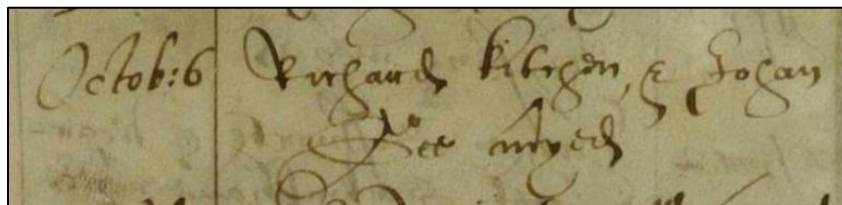 Octob: 6 Richard Kitchen, & Johan
Lee myed